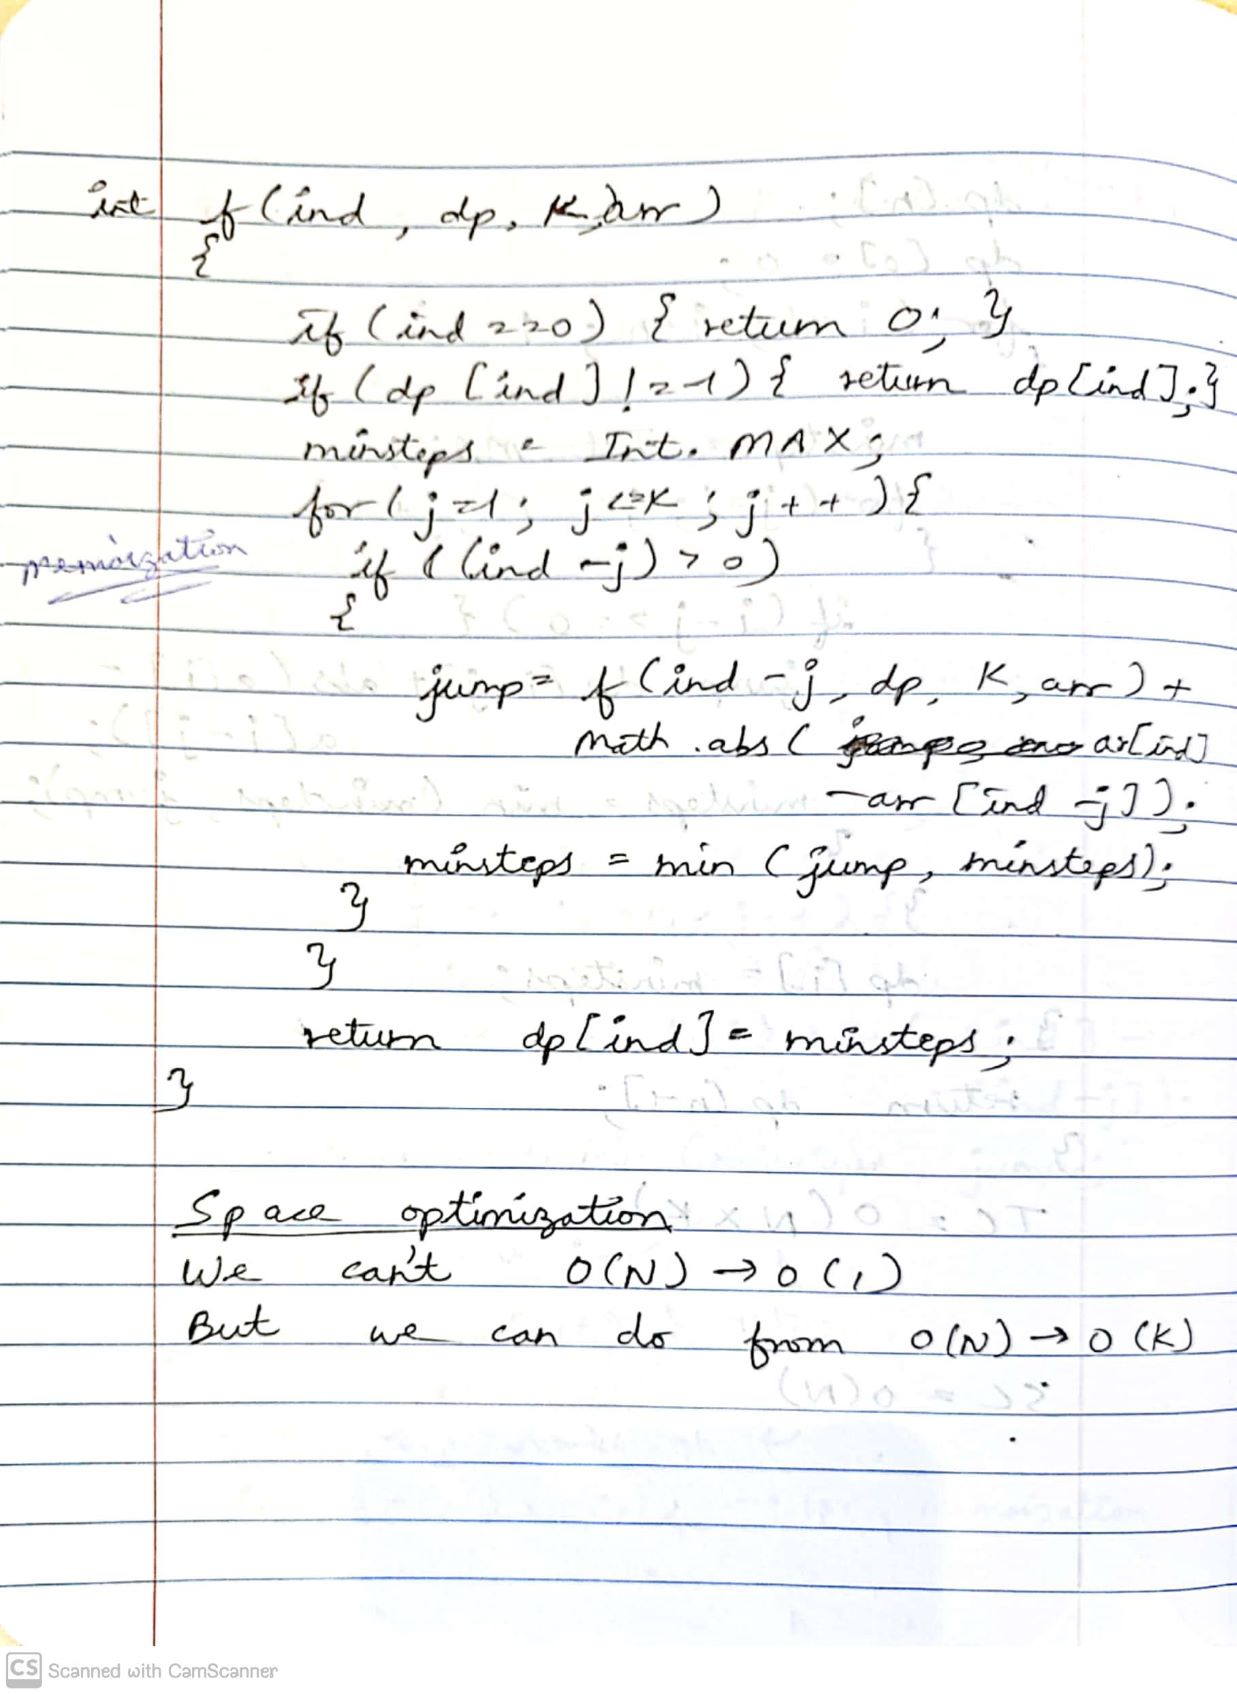 int f(ind, dp, K, arr)
{
if (ind ==0) { return 0; }
if (dp [ind] != -1) { return dp[ind];}
minsteps = Int. MAX;
for (j=1; j<=K; j++) {
memoization
if ((ind -j) > 0)
{
jump= f(ind -j, dp, K, arr) +
Math .abs ( ar[ind]
-arr [ind -j]);
minsteps = min (jump, minsteps);
}
}
return dp[ind] = minsteps;
}
Space optimization
We can't O(N) → O(1)
But we can do from O(N) → O(K)
CS Scanned with CamScanner